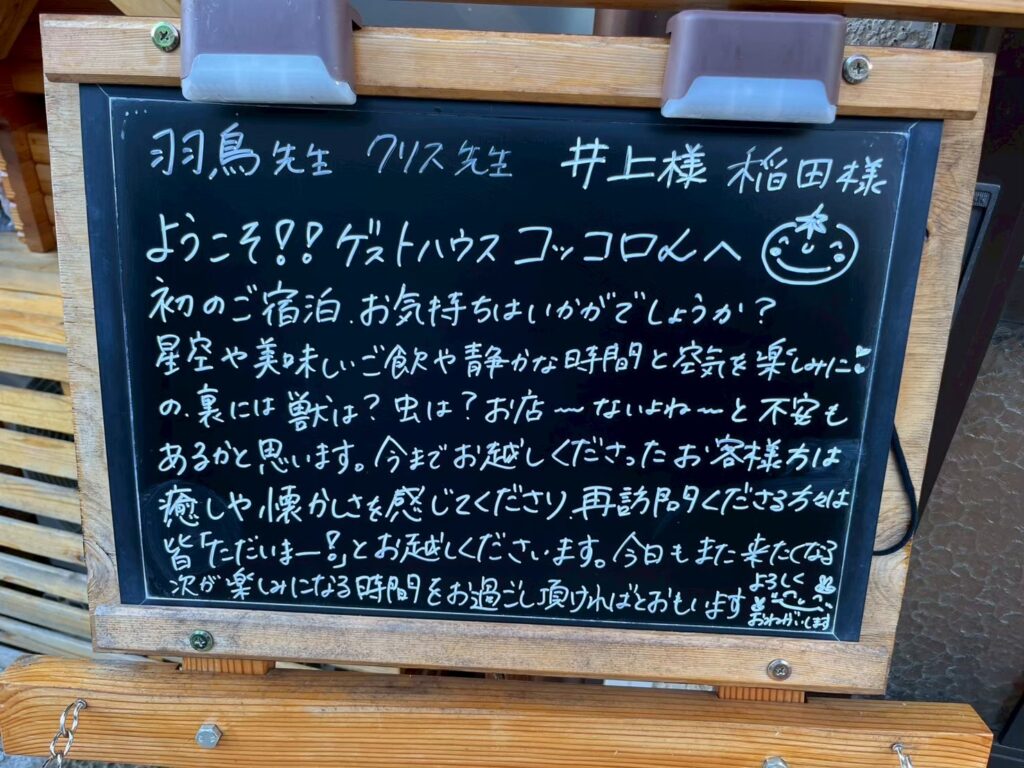 羽鳥先生 クリス先生 井上様 稲田様
ようこそ!! ゲストハウス コッコロんへ
初のご宿泊、お気持ちはいかがでしょうか?
星空や美味しいご飲や静かな時間と空気を楽しみに
の、裏には獣は?虫は?お店〜ないよね〜と不安も
あるかと思います。今までお越しくださったお客様方は
癒しや懐かしさを感じてくださり、再訪問くださる方々は
皆「ただいまー!」とお越しくださいます。今日もまた来たくなる
次が楽しみになる時間をお過ごし頂ければとおもいます
よろしく
おねがいします